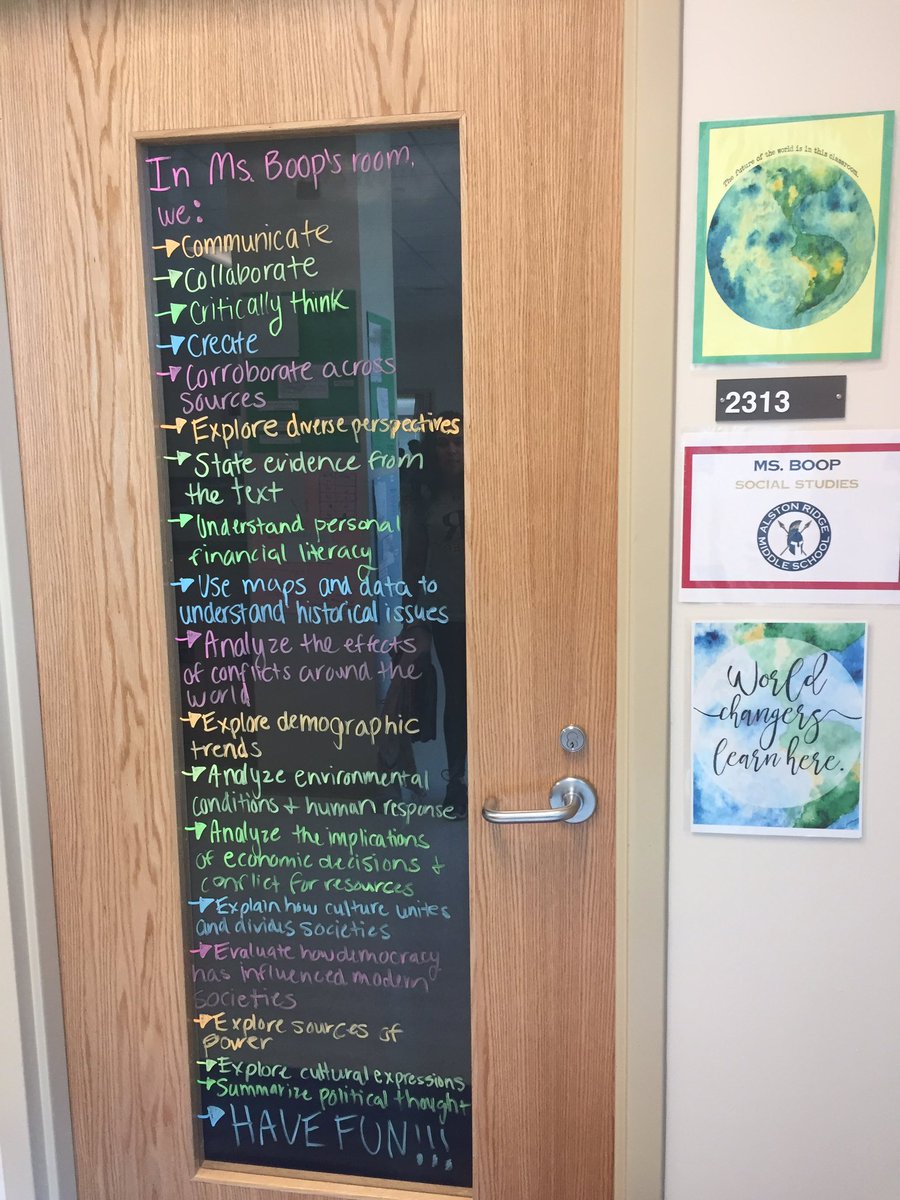 In Ms. Boop's room,
we:
→Communicate
→Collaborate
→Critically think
→Create
→Corroborate across
sources
→Explore diverse perspectives
→State evidence from
the text
→Understand personal
financial literacy
→Use maps and data to
understand historical issues
→Analyze the effects
of conflicts around the
world
→Explore demographic
trends
→Analyze environmental
conditions + human response
→Analyze the implications
of economic decisions +
conflict for resources
→Explain how culture unites
and divides societies
→Evaluate how democracy
has influenced modern
societies
→Explore sources of
power
→Explore cultural expressions
→Summarize political thought
→HAVE FUN!!!
The future of the world is in this classroom.
2313
MS. BOOP
SOCIAL STUDIES
ALSTON RIDGE
MIDDLE SCHOOL
World
changers
learn here.